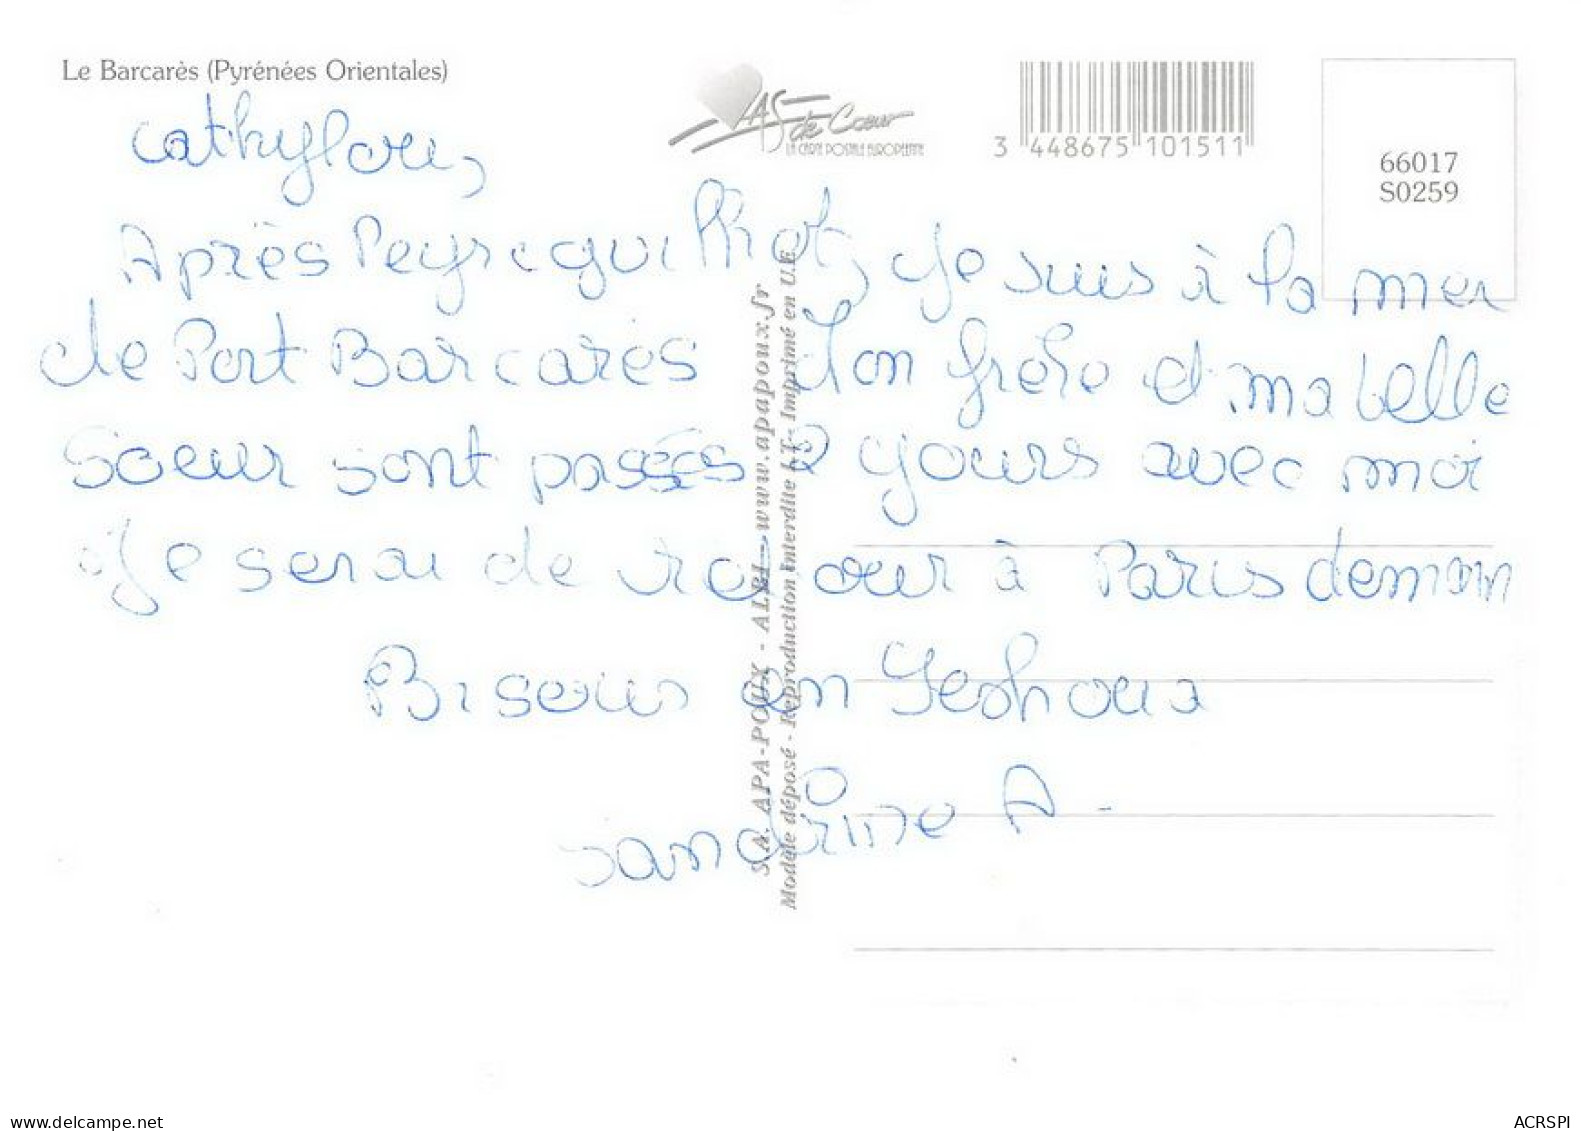 Le Barcarès (Pyrénées Orientales)
AS de Cœur
LA CARTE POSTALE EUROPÉENNE
3 448675 101511
66017
S0259
cathylou,
Après Peyreguilhot, Je suis à la mer
de Port Barcarès Mon frère et ma belle
soeur sont passés 2 jours avec moi
Je serai de retour à Paris demain
Bisous en Yeshoua
Sandrine A.
S.A. APA-POUX - ALBI - www.apapoux.fr
Modèle déposé - Reproduction interdite - Imprimé en U.E.
www.delcampe.net
ACRSPI